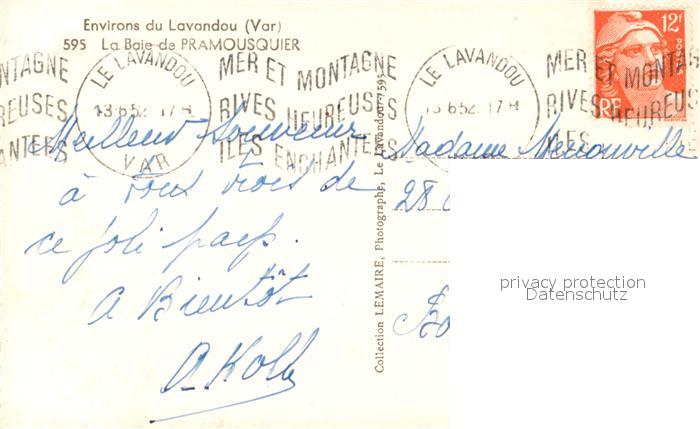 Environs du Lavandou (Var)
595 La Baie de PRAMOUSQUIER
NTAGNE
REUSES
ANTEES
LE LAVANDOU
13·6·52 17H
VAR
MER ET MONTAGNE
RIVES HEUREUSES
ILES ENCHANTEES
LE LAVANDOU
13·6·52 17H
MER ET MONTAG
RIVES HEUREUS
ILES
12F
POSTES
RF
Meilleur Souvenir
à vous trois de
ce joli pays.
A Bientôt
A. Kolb
Collection LEMAIRE, Photographe, Le Lavandou 7595
Madame
28
Bo
privacy protection
Datenschutz